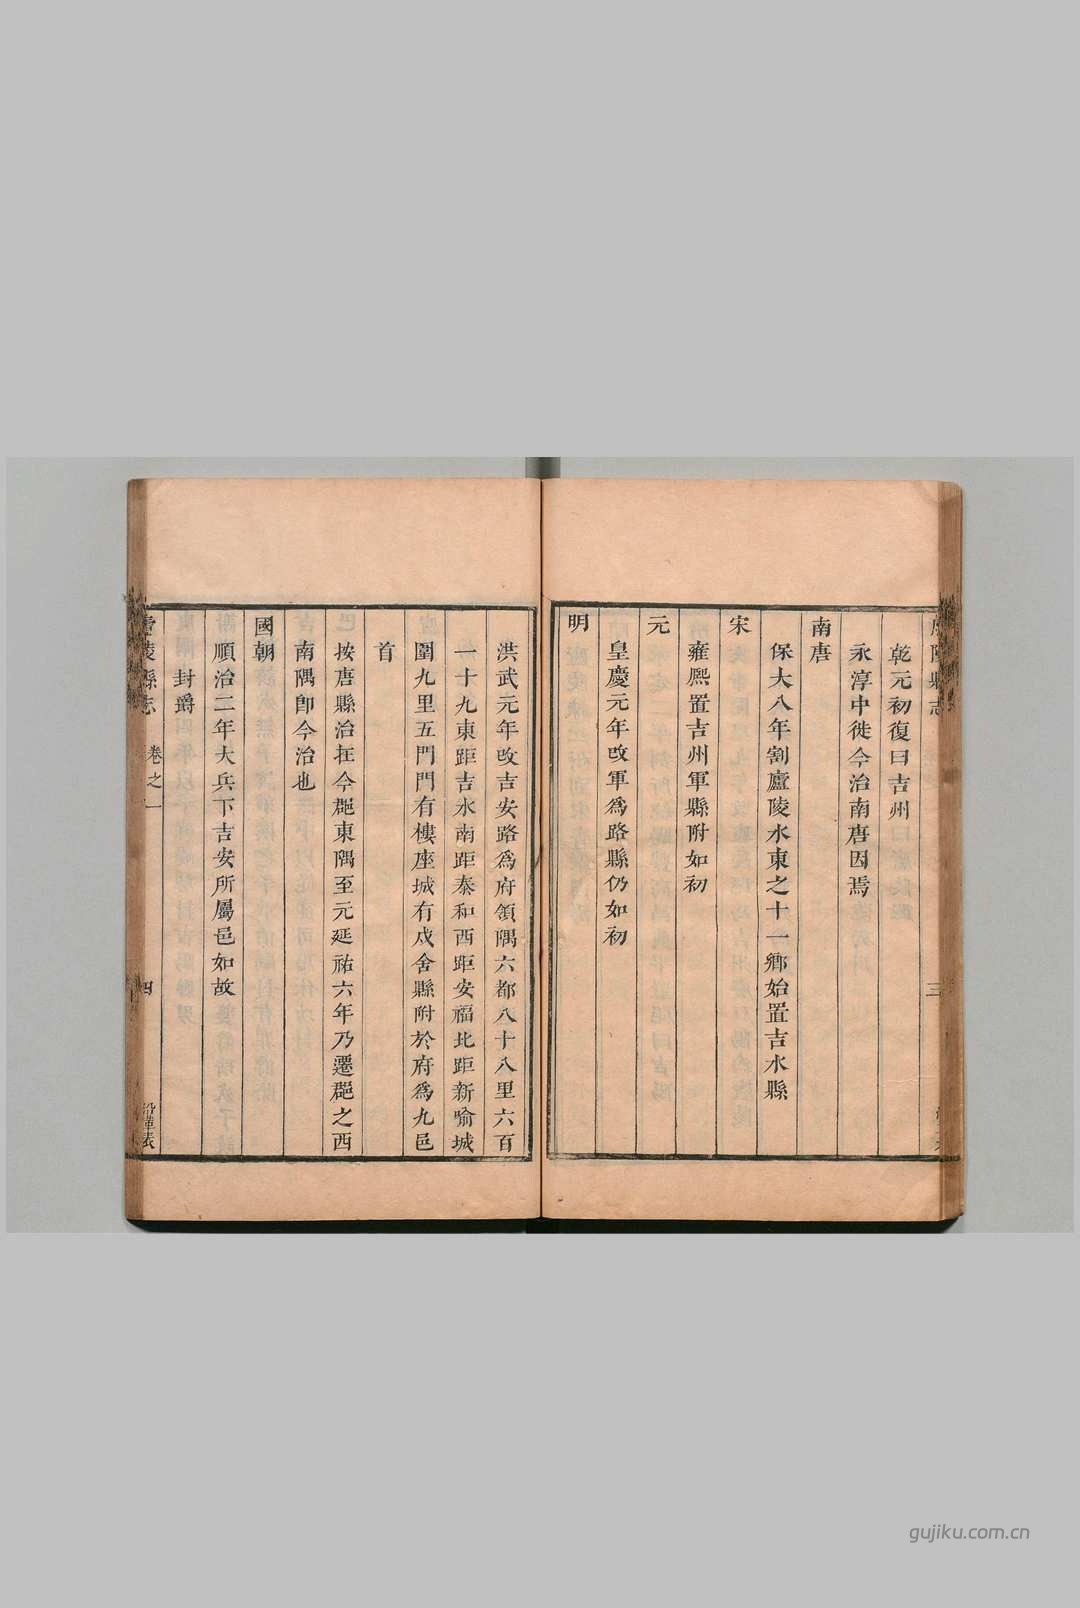 乾元初復曰吉州
永淳中徙今治南唐因焉
南唐
保大八年割廬陵水東之十一鄉始置吉水縣
宋
雍熙置吉州軍縣附如初
元
皇慶元年改軍爲路縣仍如初
明
三
洪武元年改吉安路爲府領隅六都八十八里六百
一十九東距吉水南距泰和西距安福北距新喻城
圍九里五門門有樓座城有戍舍縣附於府爲九邑
首
按唐縣治在今郡東隅至元延祐六年乃遷郡之西
南隅卽今治也
國朝
順治二年大兵下吉安所屬邑如故
封爵
廬陵縣志 卷之一 四 沿革表
gujiku.com.cn